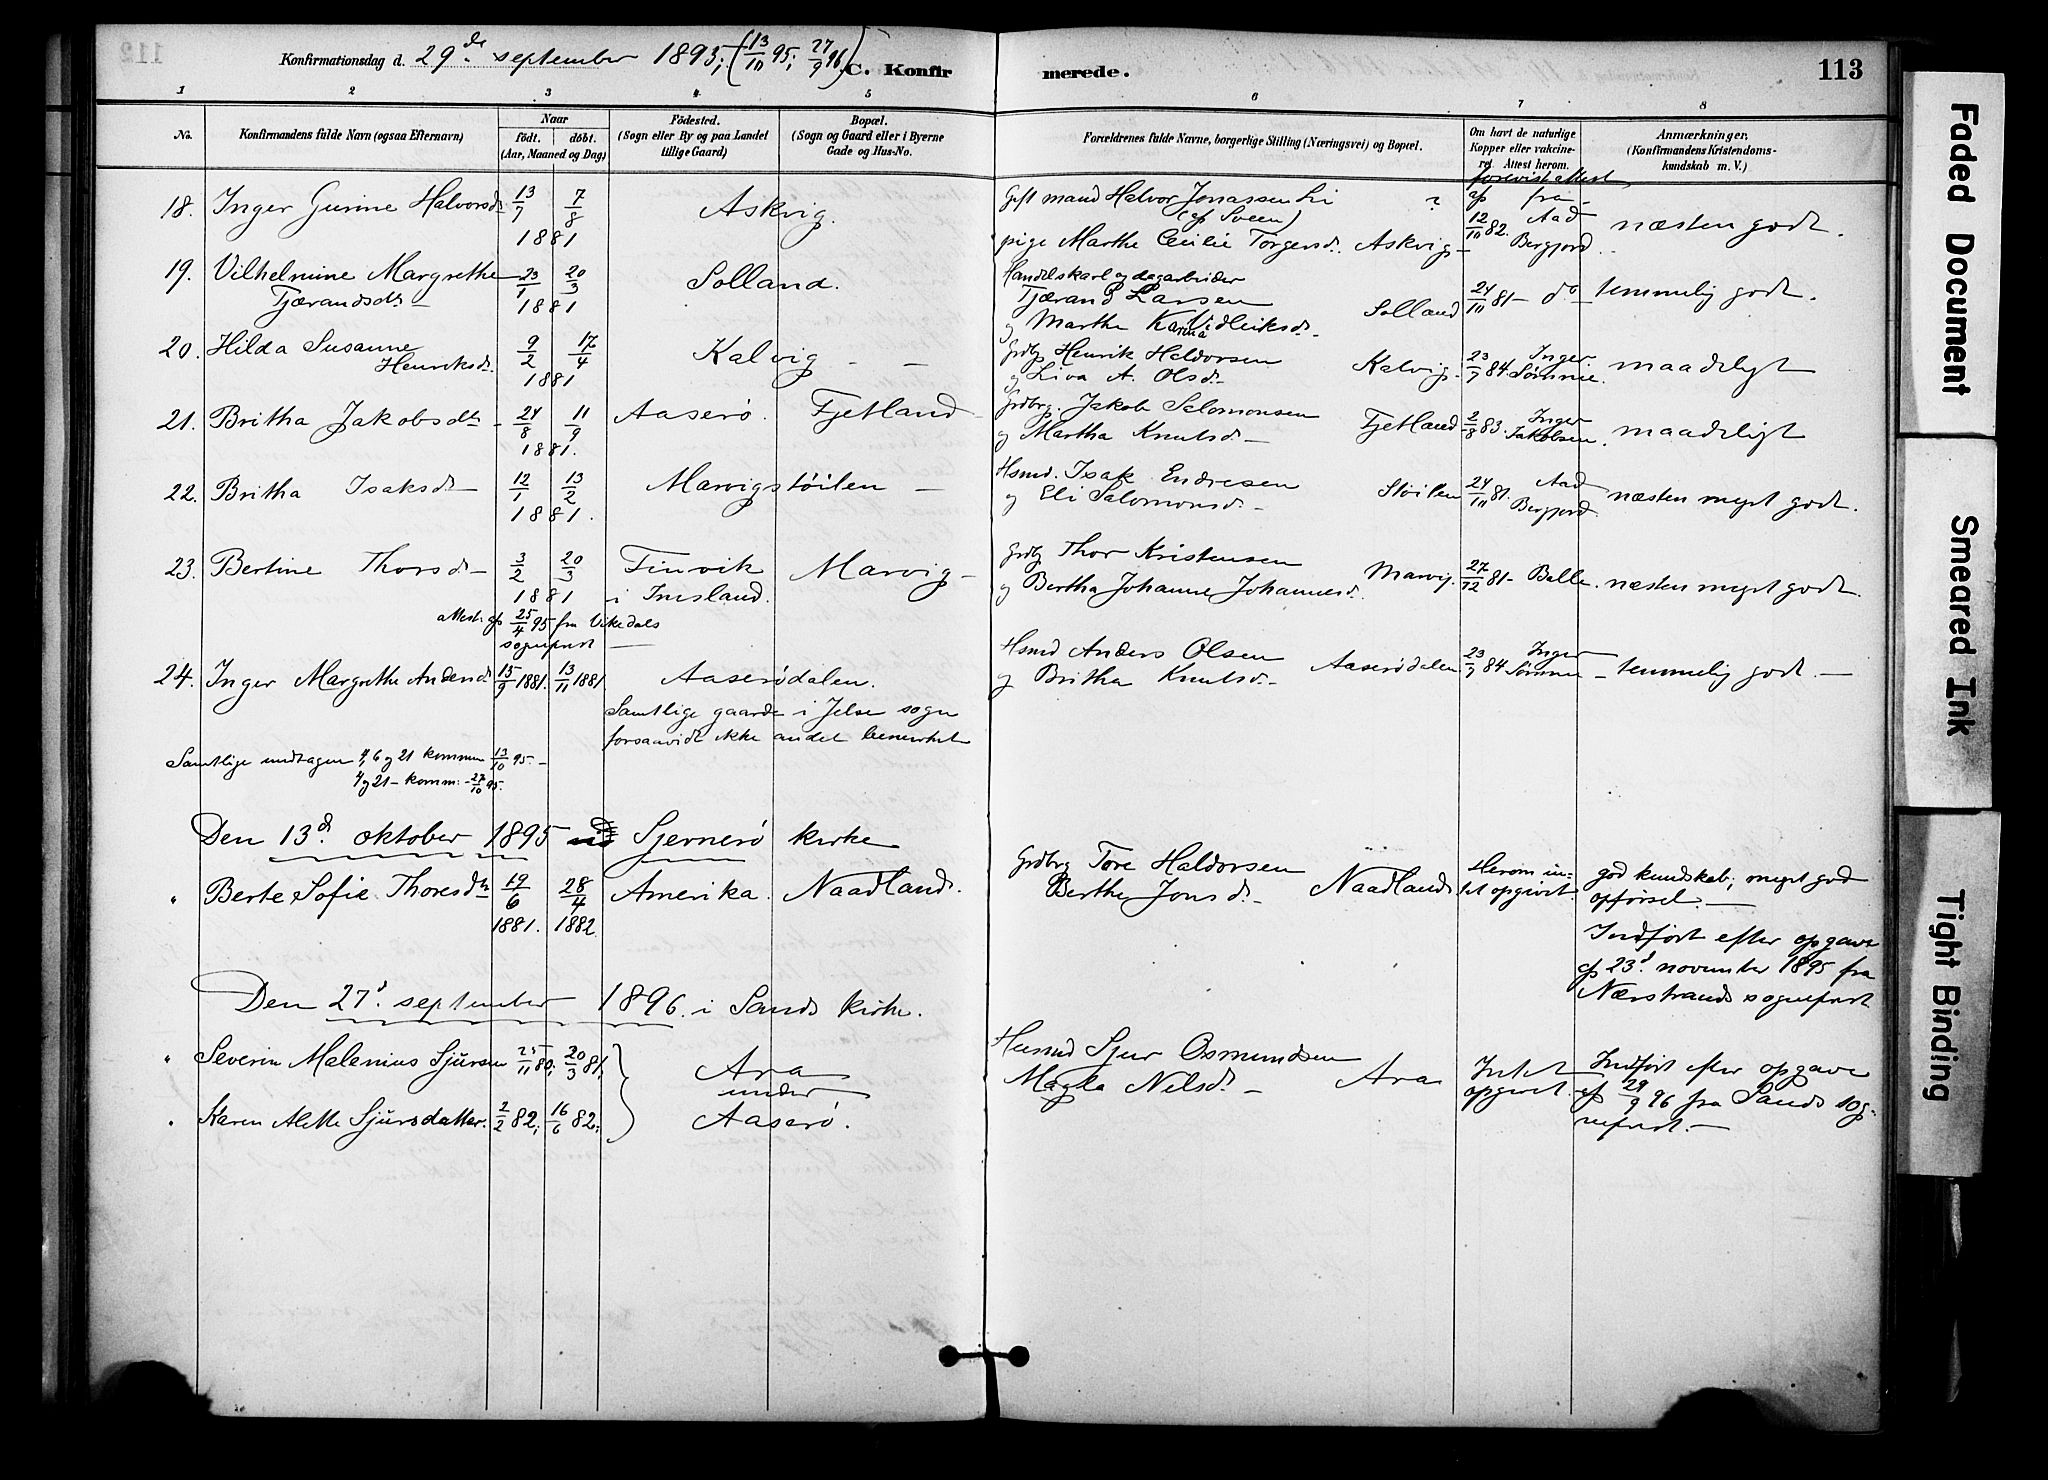 112
Konfirmationsdag d. 29de september 1895; (13/10 95; 27/9 96) C. Konfirmerede. 113
1 2 3 4 5 6 7 8
No. Konfirmandens fulde Navn (ogsaa Efternavn) Naar født. døbt. (Aar, Maaned og Dag) Fødested. (Sogn eller By og paa Landet tillige Gaard) Bopæl. (Sogn og Gaard eller i Byerne Gade og Hus-No. Forældrenes fulde Navne, borgerlige Stilling (Næringsvei) og Bopæl. Om havt de naturlige Kopper eller vakcineret. Attest herom. Anmærkninger. (Konfirmandens Kristendomskundskab m. V.)
forevist attest
18. Inger Gurine Halvorsdr 13/7 7/8 Askvig. Gift mand Halvor Jonassen Li ? af fra
1881 (af Sveen) 12/10 82. Aad næsten godt.
pige Marthe Cecilie Torgersdr. Askvig - Bergjord.
19. Vilhelmine Margrethe 23/1 20/3 Solland. Handelskarl og dagarbeider
Tjærandsdr 1881 Tjærand Larsen Solland 24/10 81 - do temmelig godt.
og Marthe Karina Vidleiksdr. -
20. Hilda Susanne 9/2 17/4 Kalvig - - Grdbg Henrik Haldorsen Kalvig. 23/7 84 Inger maadeligt
Henriksdr. 1881 og Liva A. Olsdr. Sømme.
21. Britha Jakobsdtr - 24/8 11/9 Aaserø. Fjetland - Grdbrg. Jakob Salomonsen Fjetland 2/8 83. Inger maadeligt
1881. og Martha Knutsdr - Jakobsen.
22. Britha Isaksdr - 12/1 13/2 Marvigstøilen - Hsmd. Isak Endresen Støilen 24/10 81. Aad næsten meget godt.
1881. og Eli Salomonsdr. - Bergjord.
23. Bertine Thorsdr - 3/2 20/3 Finvik Marvig - Grdbg Thor Kristensen Marvig. 27/12 81 - Balle. næsten meget godt.
1881 i Imsland. og Bertha Johanne Johannesdr.
attest: af 25/4 95 fra Vikedals
sogneprest -
24. Inger Margrethe Andersdr 15/9 1881. 13/11 1881 Aaserødalen. Hsmd Anders Olsen Aaserødalen 23/7 84 Inger temmelig godt. -
og Britha Knutsdr. - Sømme -
Samtlige gaarde i Jelse sogn
forsaavidt ikke andet bemerket
Samtlige undtagen 4, 6 og 21 kommun 13/10 95. -
4 og 21 - komm: - 27/10 95.
Den 13d. oktober 1895 i Sjernerø kirke
" Berte Sofie Thoresdtr 19/6 28/4 Amerika. Naadland. Grdbrg Tore Haldorsen Naadland Herom in- god kundskab; meget god
1881. 1882. Berthe Jonsdr. - tet opgivet. opførsel. -
Indført efter opgave
af 23d. november 1895 fra
Nærstrands sogneprest
Den 27d. september 1896. i Sands kirke.
" Severin Malenius Sjursen 25/11 80; 20/3 81; Ara Husmd Sjur Osmundsen Ara Intet Indført efter opgave
under Magla Nilsdr. - opgivet. af 29/9 96 fra Sands sog-
" Karen Alette Sjursdatter. 2/2 82; 16/6 82; Aaserø. neprest. -
Faded Document
Smeared Ink
Tight Binding